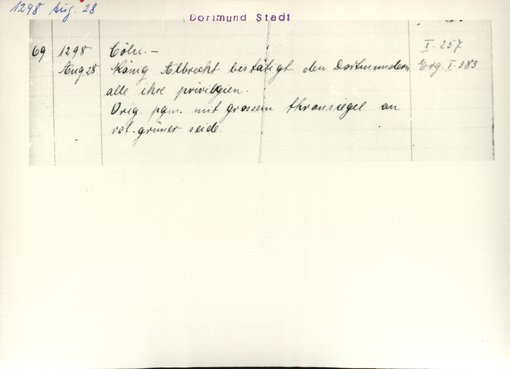 1298 Aug. 28
Dortmund Stadt
69 1298 Cöln. - I. 257
Aug 28 König Albrecht bestätigt den Dortmundern Erg. I 383
alle ihre privilegien.
Orig. pgm. mit grossem thronsiegel an
rot-grüner seide.